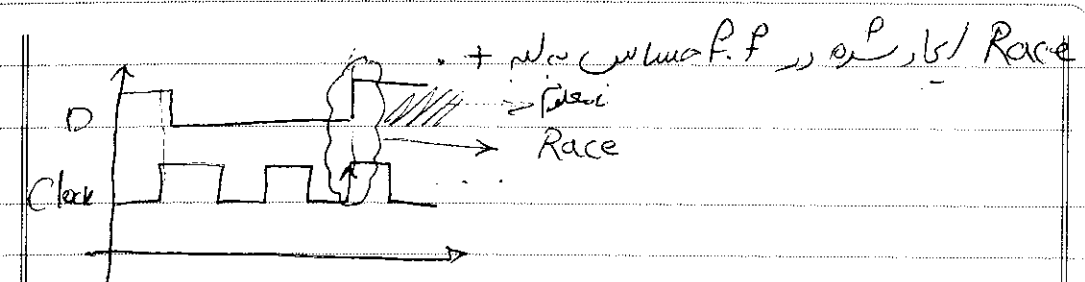 Race ایجاد شده در f.f حساس به لبه +.
D
نامعلوم
Race
Clock